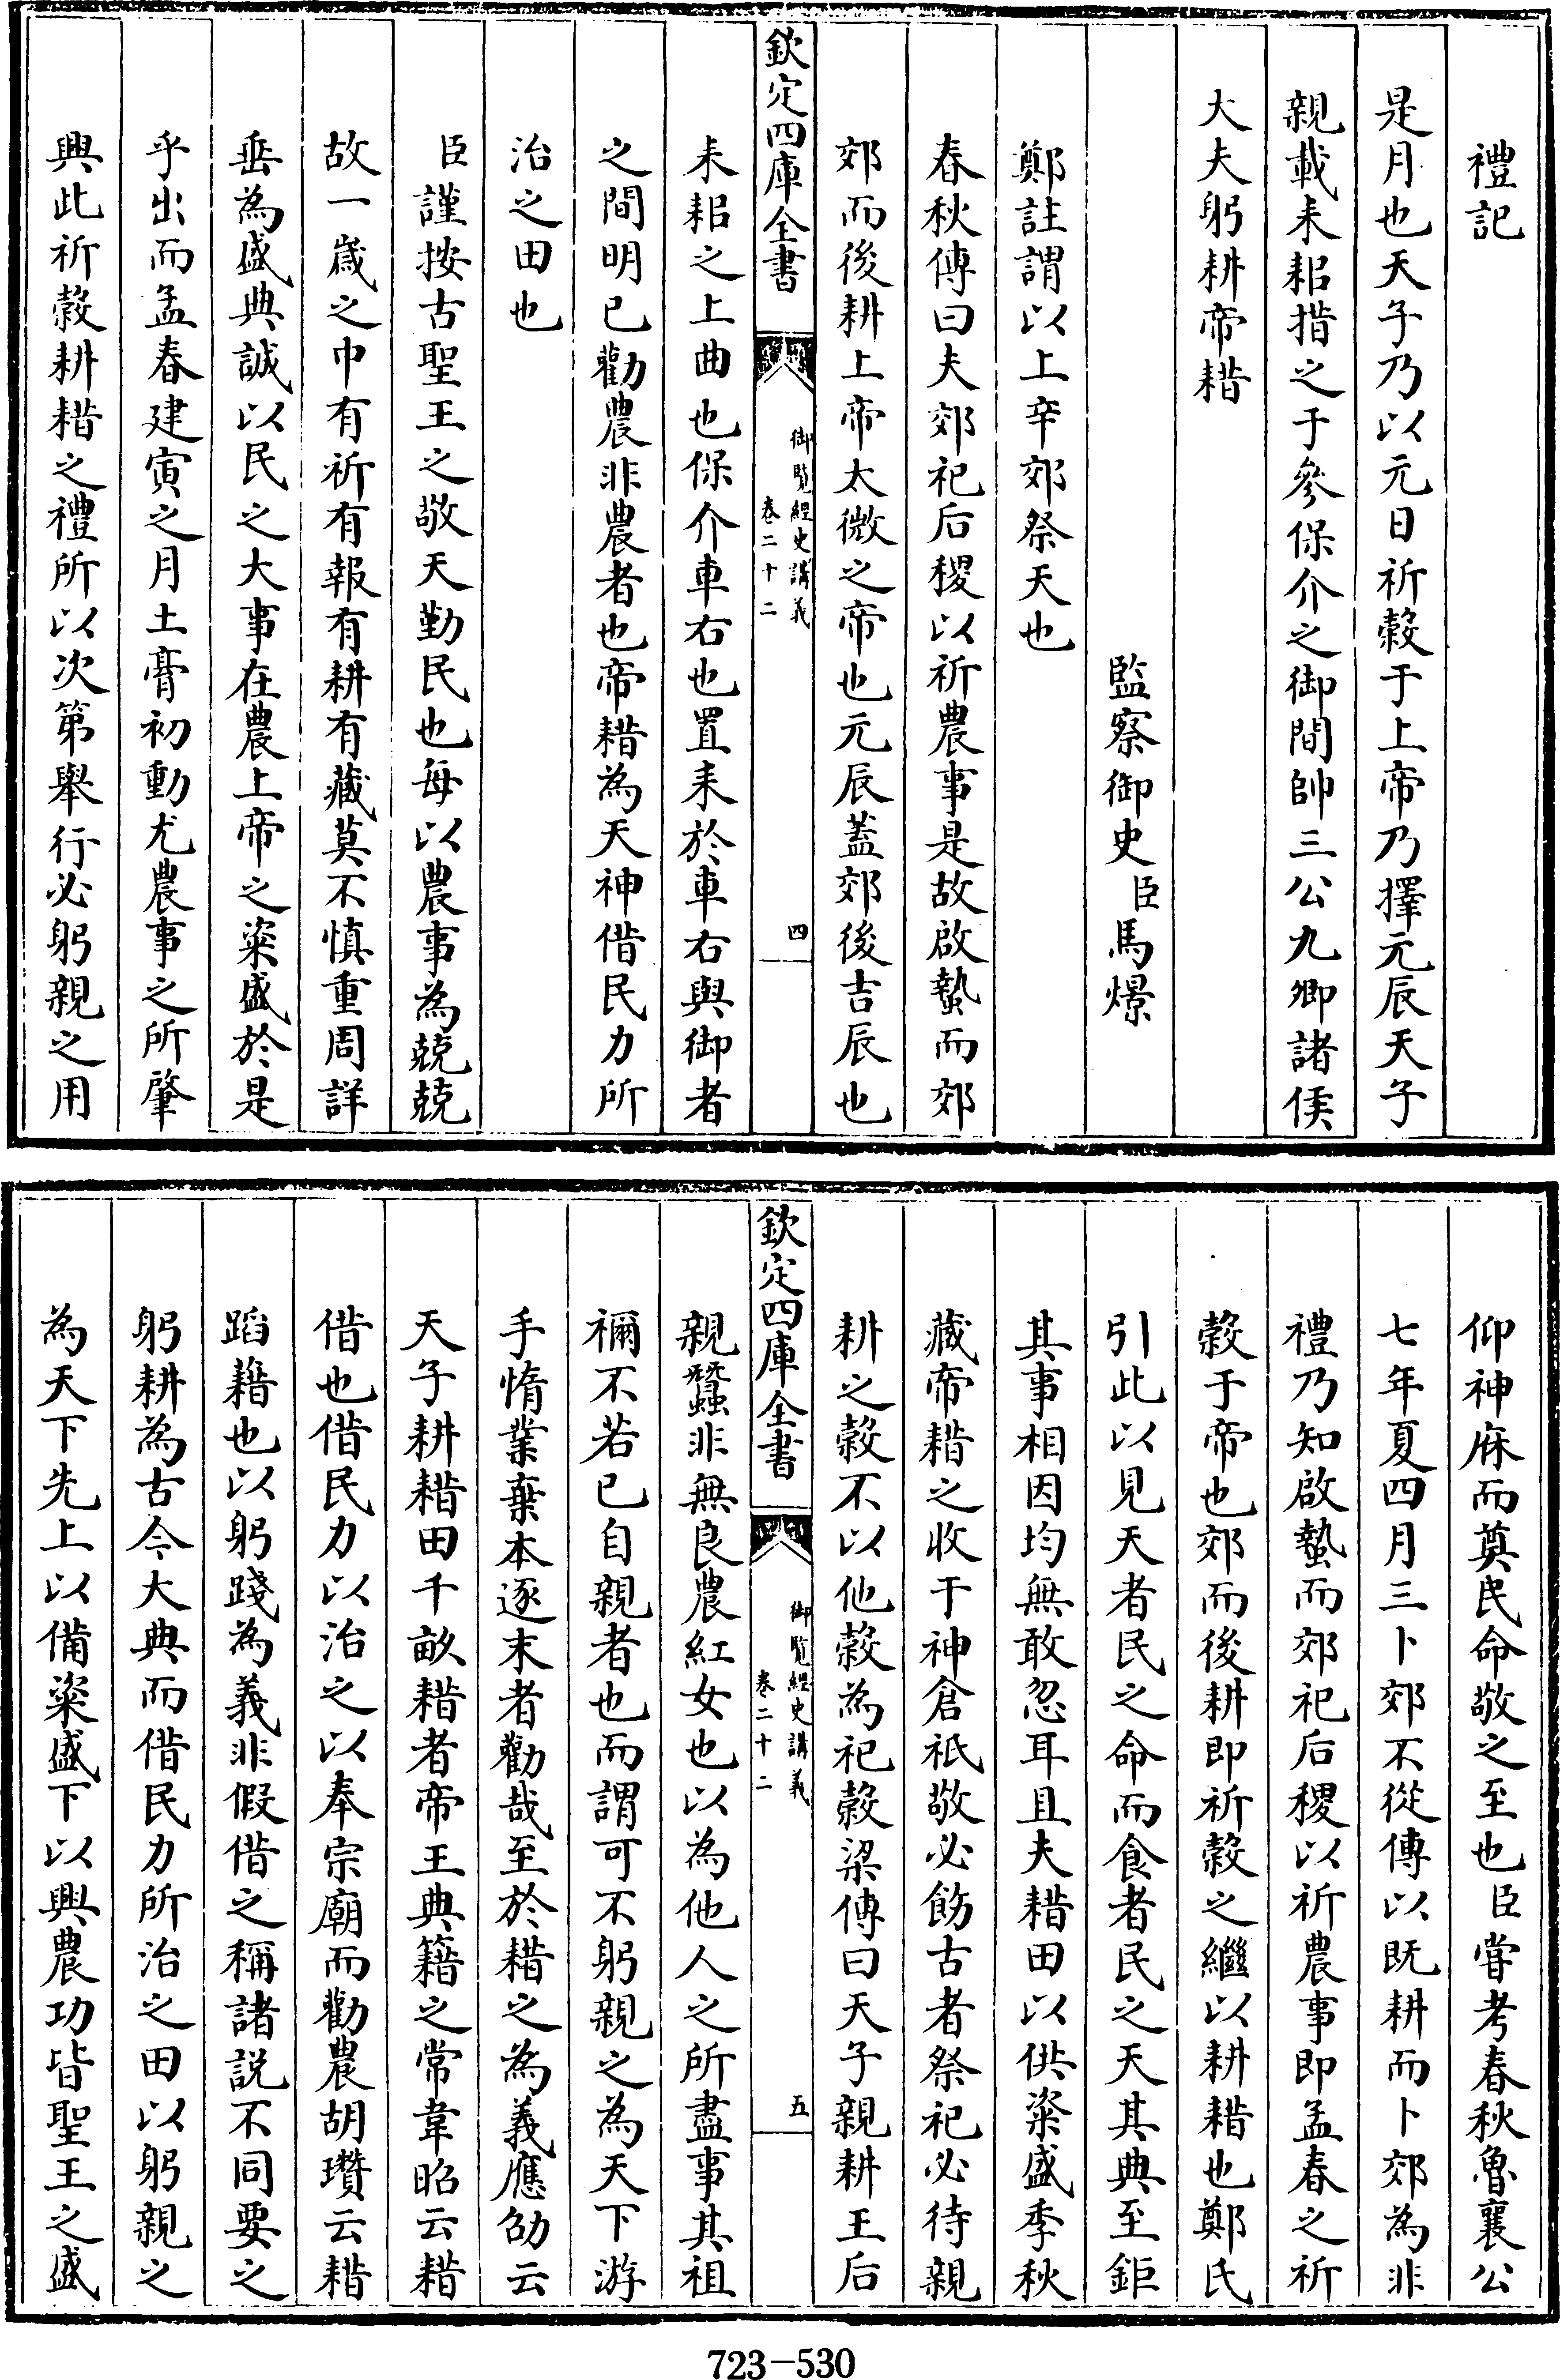 禮記
是月也天子乃以元日祈穀于上帝乃擇元辰天子
親載耒耜措之于參保介之御間帥三公九卿諸侯
大夫躬耕帝耤
監察御史臣馬燝
鄭註謂以上辛郊祭天也
春秋傳曰夫郊祀后稷以祈農事是故啟蟄而郊
郊而後耕上帝太微之帝也元辰蓋郊後吉辰也
欽定四庫全書
御覽經史講義
卷二十二
四
耒耜之上曲也保介車右也置耒於車右與御者
之間明已勸農非農者也帝耤為天神借民力所
治之田也
臣謹按古聖王之敬天勤民也每以農事為兢兢
故一歲之中有祈有報有耕有藏莫不慎重周詳
垂為盛典誠以民之大事在農上帝之粢盛於是
乎出而孟春建寅之月土膏初動尤農事之所肇
興此祈穀耕耤之禮所以次第舉行必躬親之用
仰神庥而奠民命敬之至也臣嘗考春秋魯襄公
七年夏四月三卜郊不從傳以既耕而卜郊為非
禮乃知啟蟄而郊祀后稷以祈農事即孟春之祈
穀于帝也郊而後耕即祈穀之繼以耕耤也鄭氏
引此以見天者民之命而食者民之天其典至鉅
其事相因均無敢忽耳且夫耤田以供粢盛季秋
藏帝耤之收于神倉祗敬必飭古者祭祀必待親
耕之穀不以他穀為祀穀梁傳曰天子親耕王后
欽定四庫全書
御覽經史講義
卷二十二
五
親蠶非無良農紅女也以為他人之所盡事其祖
禰不若已自親者也而謂可不躬親之為天下游
手惰業棄本逐末者勸哉至於耤之為義應劭云
天子耕耤田千畝耤者帝王典籍之常韋昭云耤
借也借民力以治之以奉宗廟而勸農胡瓚云耤
蹈耤也以躬踐為義非假借之稱諸説不同要之
躬耕為古今大典而借民力所治之田以躬親之
為天下先上以備粢盛下以興農功皆聖王之盛
723-530